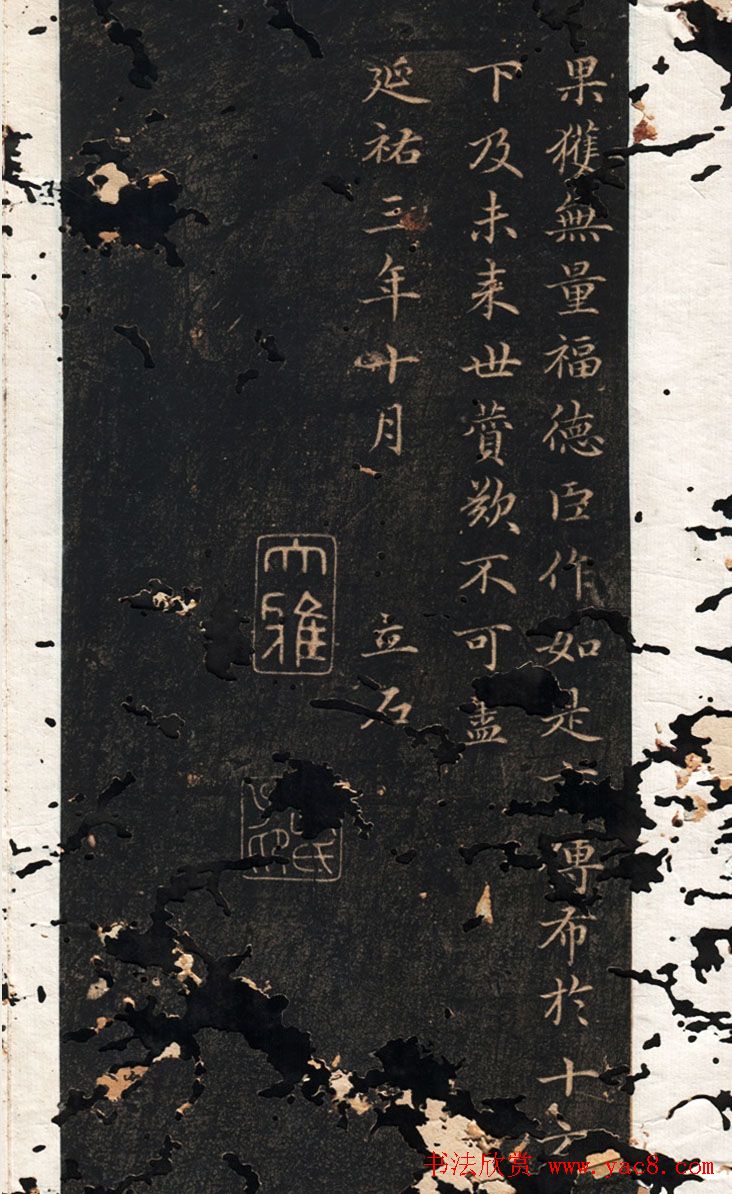 果獲無量福德臣作如是傳布於十方
下及未来世賛歎不可盡
延祐三年十月 立石
大雅
氏
书法欣赏 www.yac8.com